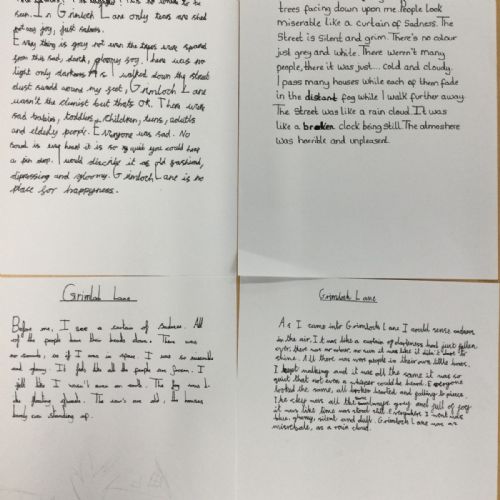 seen. In Grimloch Lane only tears are shed
not any joy, just sadness.
Every thing is grey not even the trees were spared
from this sad, dark, gloomy fog. There was no
light only darkness. As I walked down the street
dust swirled around my feet, Grimloch Lane
wasn't the but thats OK. There were
sad babies, toddlers, children, teens, adults
and elderly people. Everyone was sad. No
sound is was heard it is so quit you could hear
a pin drop. I would discribe it as old fashioned,
dipressing and gloomy. Grimloch Lane is no
place for happyness.
trees facing down upon me. People look
miserable like a curtain of sadness. The
Street is silent and grim. There's no colour
just grey and white. There weren't many
people, there it was just... cold and cloudy.
I pass many houses while each of them fade
in the distant fog while I walk further away.
The street was like a rain cloud. It was
like a broken clock being still. The atmoshere
was horrible and unpleasent.
Grimloch Lane
Before me, I see a curtain of sadness. All
of the people have their heads down. There was
no sounds, as if I was in space. I was so
and gloomy. It feels like all the people are frozen. I
felt like I wasn't even on earth. The fog was
the floating The cow's are old, the houses
barely even standing up.
Grimloch Lane
As I came into Grimloch Lane I could sense sadness
in the air. It was like a curtain of darkness had just fallen
over, there was no colour, no sun it was like it didn't dare to
shine. All there was were people in their own little worlds.
I kept walking and it was all the same it was so
quiet that not even a whisper could be heard. Everyone
looked the same, all broken hearted and falling to pieces.
The sky was all the same grey and full of fog
it was like time was stood still. Everywhere I went was
blue, gloomy, silent and dull. Grimloch Lane was as
miserable, as a rain cloud.